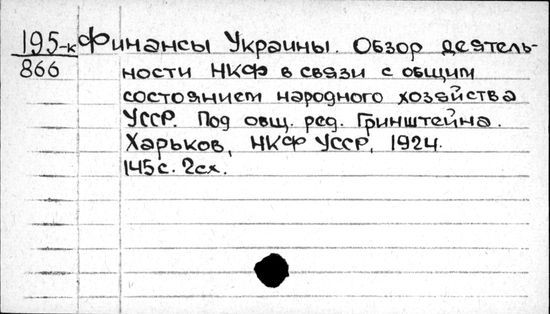 195-к Финансы Украины. Обзор деятель-
866 ности НКФ в связи с общим
состоянием народного хозяйства
УССР. Под общ. ред. Гринштейна.
Харьков, НКФ УССР, 1924.
145с. 2сх.